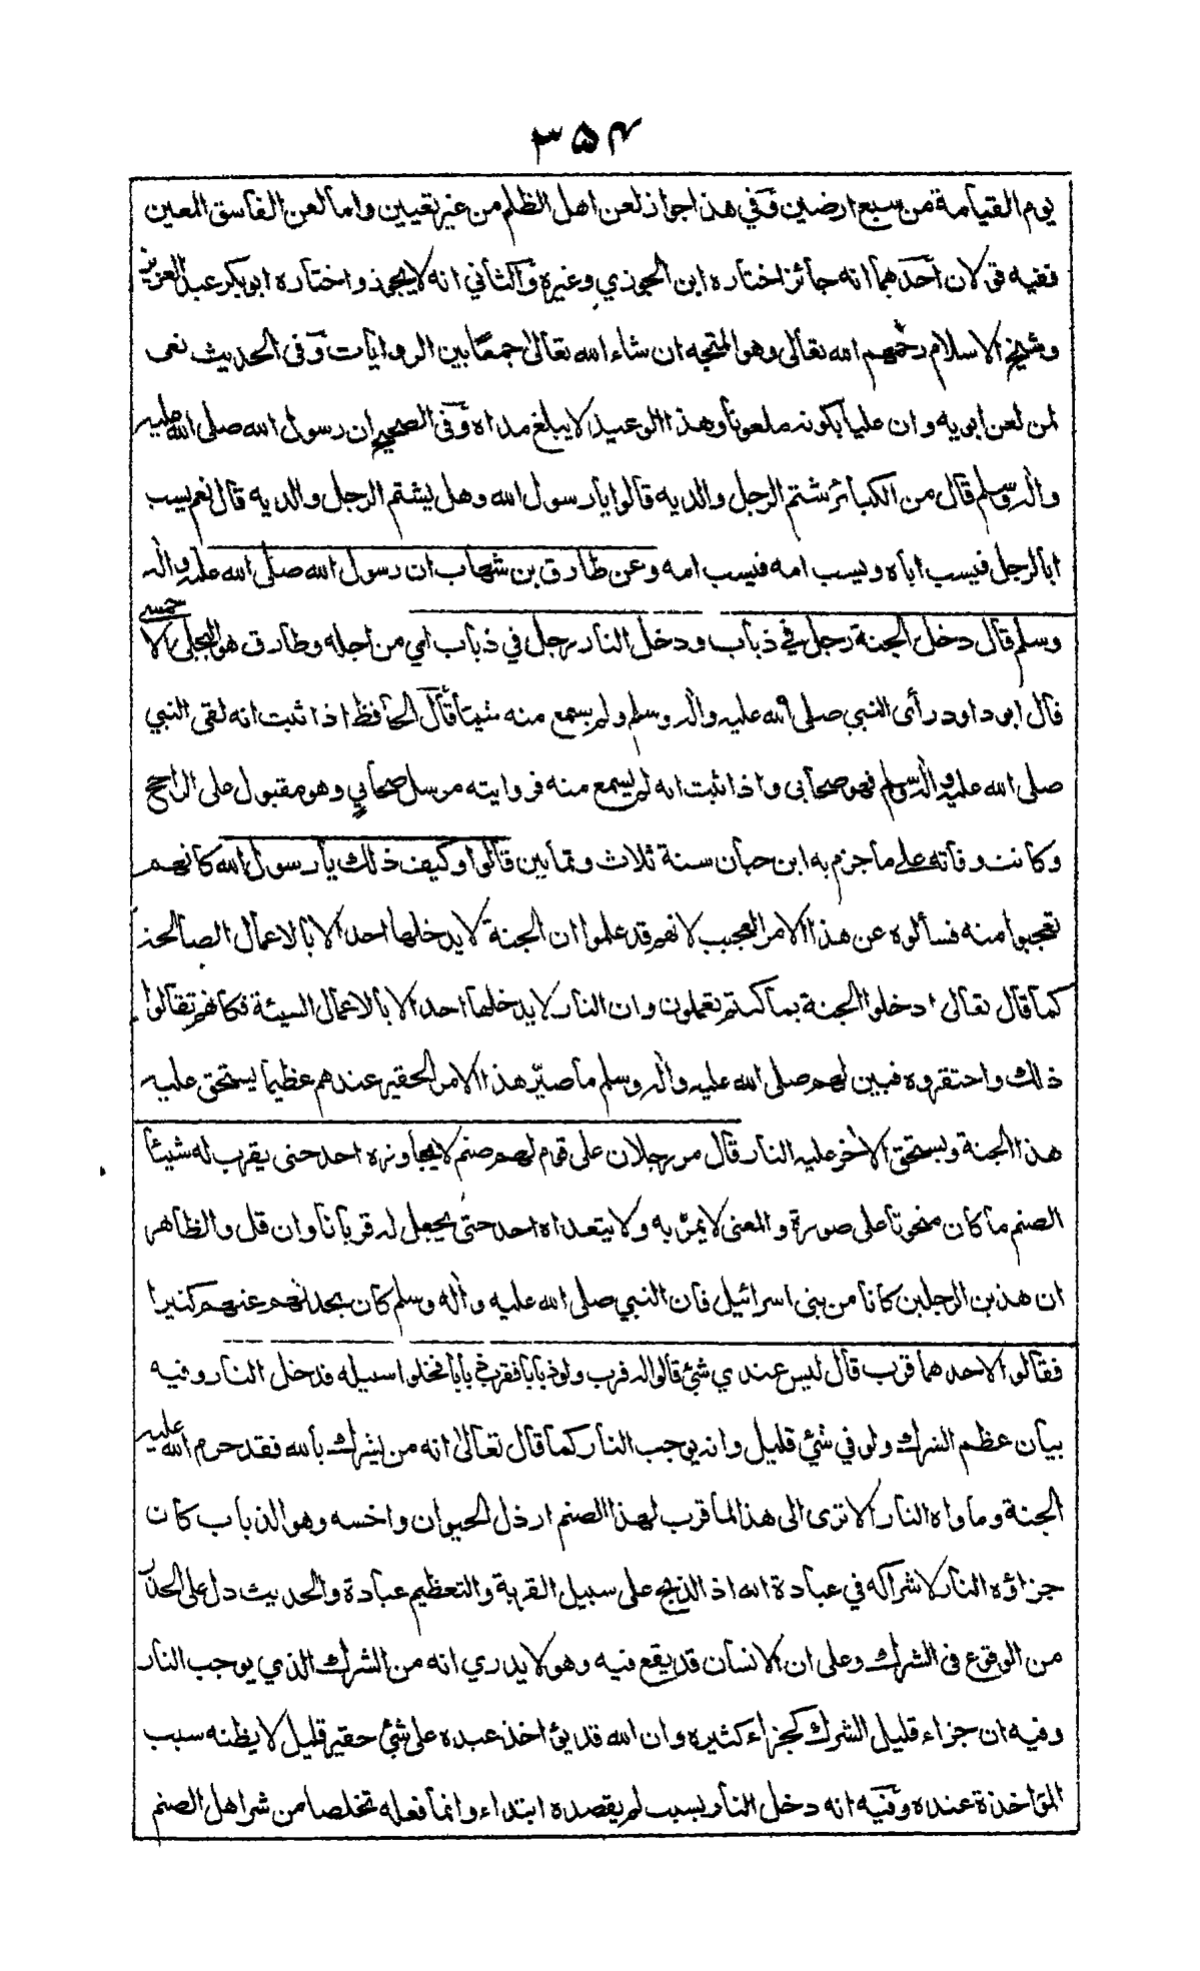 ۳۵۴
يوم القيامة من سبع ارضين وفي هذا جواز لعن اهل الظلم من غير تعيين واما لعن الفاسق المعين
ففيه قولان احدهما انه جائز اختاره ابن الجوزي وغيره والثاني انه لا يجوز واختاره ابو بكر عبد العزيز
وشيخ الاسلام رحمهم الله تعالى وهو المتجه ان شاء الله تعالى جمعًا بين الروايات وفى الحديث نعى
لمن لعن ابويه وان عليا بكونه ملعونا وهذا الوعيد لا يبلغ مداه وفى الصحيح ان رسول الله صلى الله عليه
واله وسلم قال من الكبائر شتم الرجل والديه قالوا يا رسول الله وهل يشتم الرجل والديه قال نعم يسب
ابا الرجل فيسب اباه ويسب امه فيسب امه وعن طارق بن شهاب ان رسول الله صلى الله عليه واله
وسلم قال دخل الجنة رجل في ذباب ودخل النار رجل في ذباب اي من اجله وطارق هو البجلى الاحمسى
قال ابو داود رأى النبي صلى الله عليه واله وسلم ولم يسمع منه شيئا قال الحافظ اذا ثبت انه لقى النبي
صلى الله عليه واله وسلم فهو صحابى واذا ثبت انه لم يسمع منه فروايته مرسل صحابي وهو مقبول على الراجح
وكانت وفاته على ما جزم به ابن حبان سنة ثلاث وثمانين قالوا وكيف ذلك يا رسول الله كانهم
تعجبوا منه فسألوه عن هذا الامر العجيب لانهم قد علموا ان الجنة لا يدخلها احد الا بالاعمال الصالحة
كما قال تعالى ادخلوا الجنة بما كنتم تعملون وان النار لا يدخلها احد الا بالاعمال السيئة فكانهم تقالوا
ذلك واحتقروه فبين لهم صلى الله عليه واله وسلم ما صيّر هذا الامر الحقير عندهم عظيما يستحق عليه
هذا الجنة ويستحق الاخر عليه النار قال مر رجلان على قوم لهم صنم لا يجاوزه احد حتى يقرب له شيئا
الصنم ما كان منحوتا على صورة والمعنى لا يمرّ به ولا يتعداه احد حتى يجعل له قربانا وان قل والظاهر
ان هذين الرجلين كانا من بنى اسرائيل فان النبي صلى الله عليه واله وسلم كان يحدثهم عنهم كثيرا
فقالوا لاحدهما قرب قال ليس عندي شئ قالوا له قرب ولو ذبابا فقرب ذبابا فخلوا سبيله فدخل النار وفيه
بيان عظم الشرك ولو في شئ قليل وانه يوجب النار كما قال تعالى انه من يشرك بالله فقد حرم الله عليه
الجنة وماواه النار الا ترى الى هذا لما قرب لهذا الصنم ارذل الحيوان واخسه وهو الذباب كان
جزاؤه النار لاشراكه في عبادة الله اذ الذبح على سبيل القربة والتعظيم عبادة والحديث دل على الحذر
من الوقوع فى الشرك وعلى ان الانسان قد يقع فيه وهو لا يدري انه من الشرك الذي يوجب النار
وفيه ان جزاء قليل الشرك كجزاء كثيره وان الله قد يؤاخذ عبده على شئ حقير قليل لا يظنه سبب
المؤاخذة عنده وفيه انه دخل النار بسبب لم يقصده ابتداء وانما فعله تخلصا من شر اهل الصنم